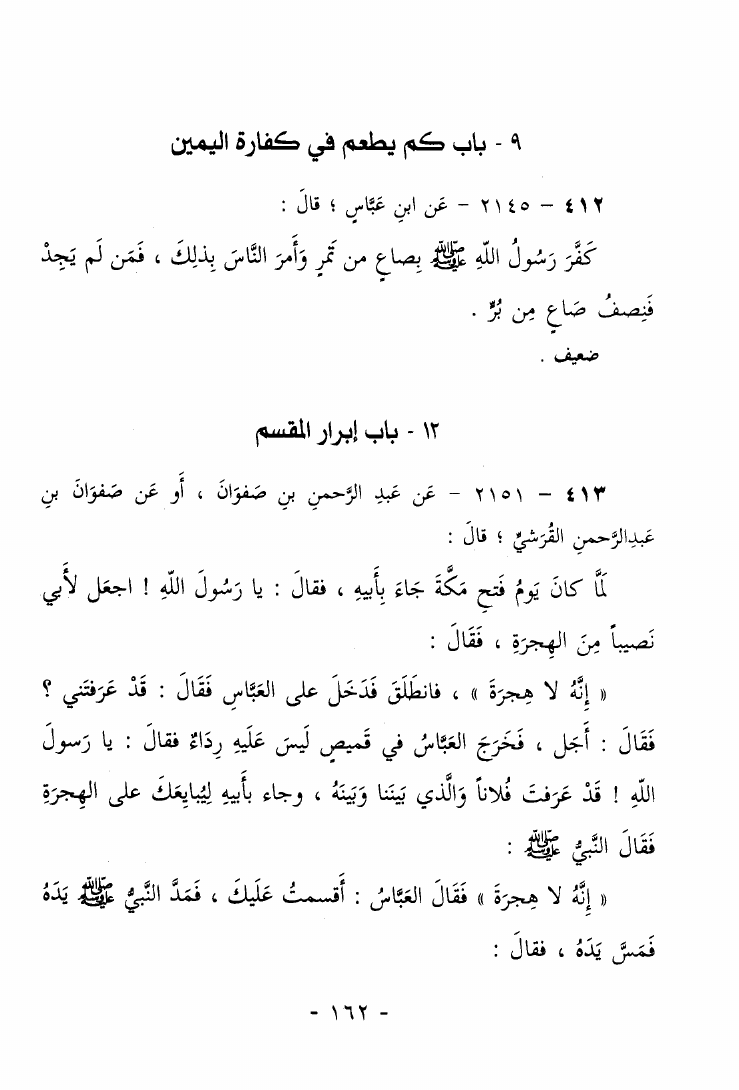 ٩ - باب كم يطعم في كفارة اليمين
٤١٢ – ٢١٤٥ – عَن ابنِ عَبَّاسٍ ؛ قالَ :
كَفَّرَ رَسُولُ اللّهِ ﷺ بِصاعٍ من تَمرٍ وَأَمرَ النَّاسَ بِذلِكَ ، فَمَن لَم يَجِدْ
فَنِصفُ صَاعٍ مِن بُرٍّ .
ضعيف .
١٢ - باب إبرار المقسم
٤١٣ – ٢١٥١ – عَن عَبدِ الرَّحمنِ بنِ صَفوَانَ ، أَو عَن صَفوَانَ بنِ
عَبدِالرَّحمنِ القُرَشيِّ ؛ قالَ :
لَمَّا كانَ يَومُ فَتحِ مَكَّةَ جَاءَ بِأَبيهِ ، فقالَ : يا رَسُولَ اللّهِ ! اجعَل لأَبي
نَصيباً مِنَ الهِجرَةِ ، فَقَالَ :
« إِنَّهُ لا هِجرَةَ » ، فانطَلَقَ فَدَخَلَ على العَبَّاسِ فَقَالَ : قَدْ عَرَفتَني ؟
فَقَالَ : أَجَل ، فَخَرَجَ العَبَّاسُ في قَميصٍ لَيسَ عَلَيهِ رِدَاءٌ فقالَ : يا رَسولَ
اللّهِ ! قَدْ عَرَفتَ فُلاناً وَالَّذي بَينَنا وَبَينَهُ ، وجاء بأَبيهِ لِيُبايِعَكَ على الهِجرَةِ
فَقَالَ النَّبيُّ ﷺ :
« إِنَّهُ لا هِجرَةَ » فَقَالَ العَبَّاسُ : أَقسمتُ عَلَيكَ ، فَمَدَّ النَّبيُّ ﷺ يَدَهُ
فَمَسَّ يَدَهُ ، فقالَ :
- ١٦٢ -